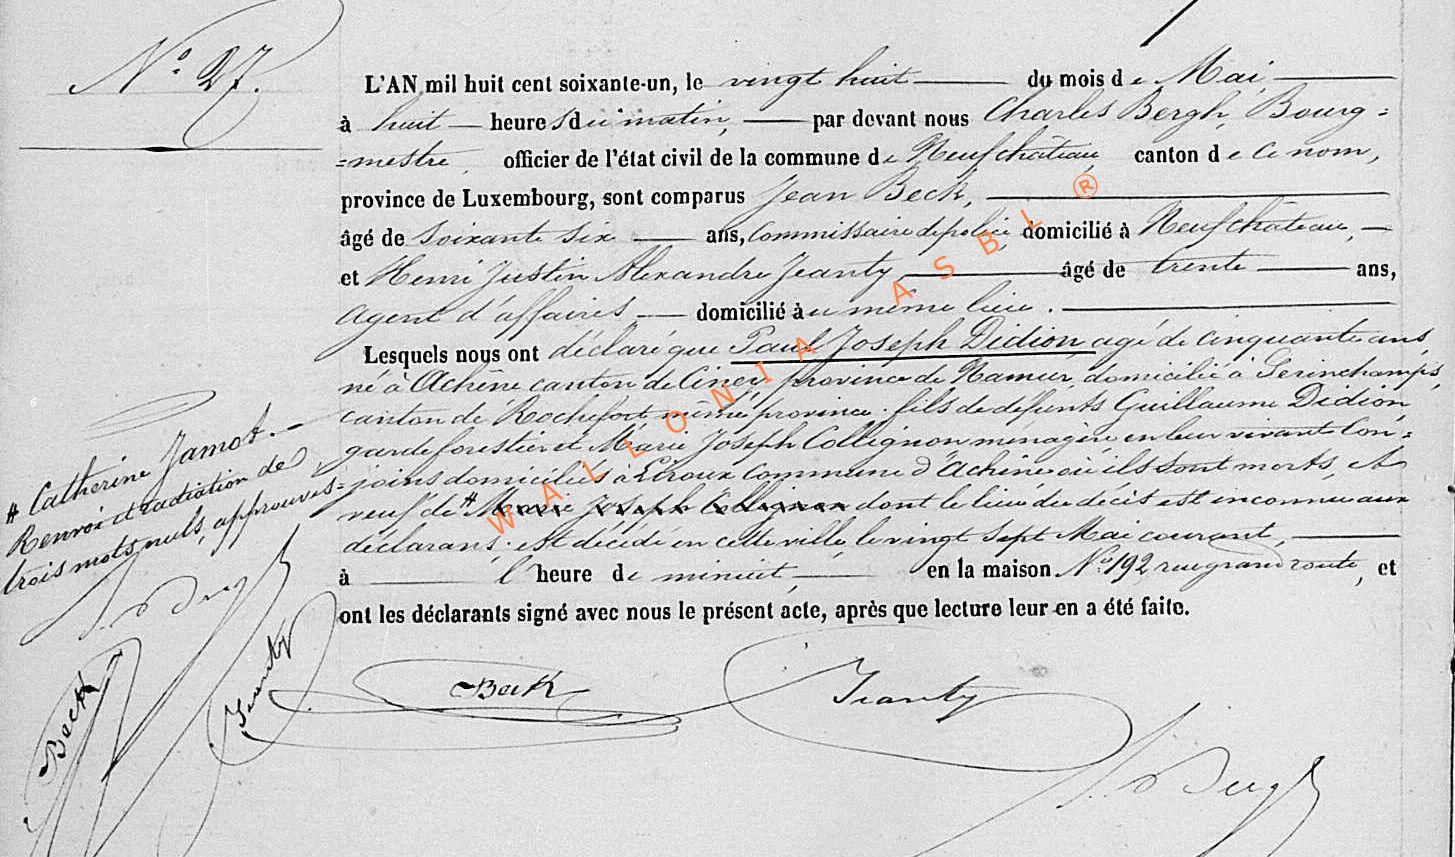 N° 27.
L'AN mil huit cent soixante-un, le vingt huit du mois de Mai,
à huit heures du matin, par devant nous Charles Bergh, Bourg=
=mestre officier de l'état civil de la commune de Neufchâteau, canton de ce nom,
province de Luxembourg, sont comparus Jean Beck,
âgé de soixante six ans, Commissaire de police domicilié à Neufchâteau,
et Henri Justin Alexandre Jeanty âgé de trente ans,
agent d'affaires domicilié au même lieu.
Lesquels nous ont déclaré que Paul Joseph Didion, agé de cinquante ans,
né à Achêne canton de Ciney, province de Namur, domicilié à Serinchamps,
canton de Rochefort même province. fils de défunts Guillaume Didion
garde forestier et Marie Joseph Collignon ménagère en leur vivant Con=
=joins domiciliés à commune d'Achêne où ils sont morts, et
veuf de # Marie Joseph Collignon dont le lieu du décès est inconnu aux
déclarans. est décédé en cette ville, le vingt sept Mai courant,
à l'heure de minuit, en la maison N° 192 rue grand route, et
ont les déclarants signé avec nous le présent acte, après que lecture leur en a été faite.
# Catherine Jamot.
Renvoi et radiation de
trois mots nuls, approuvés
Bergh
Beck
Jeanty
Beck
Jeanty
Bergh
WALLONIA ASBL ®